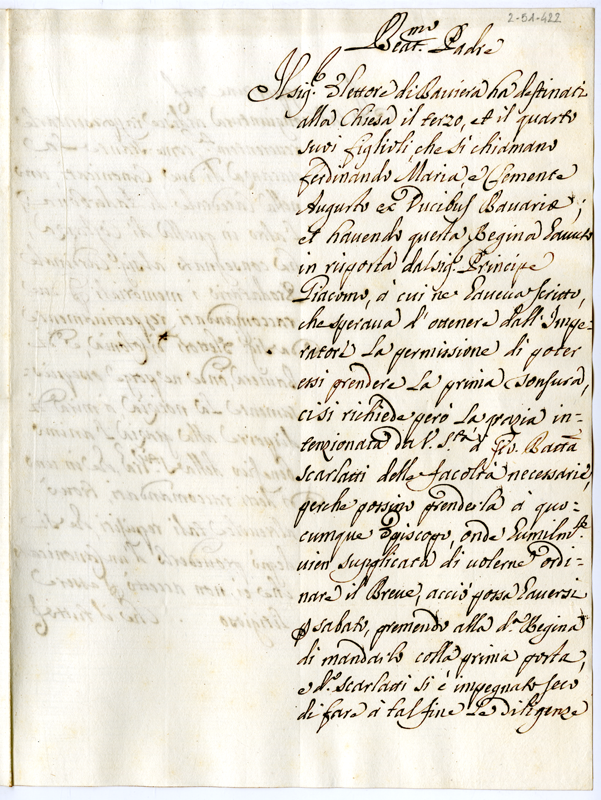 2-51-422
Beat.mo Padre
Il sig.r Elettore di Baviera ha destinati
alla Chiesa il terzo, et il quarto
suoi figlioli, che si chiamano
Ferdinando Maria, e Clemente
Augusto ex Ducibus Bavariæ;
et havendo questa Regina havuto
in risposta dal sig.r Principe
Giacomo, à cui ne haveva scritto,
che sperava d'ottenere dall'Impe-
ratore la permissione di poter
essi prendere la prima tonsura,
ci si richiede però la grazia in-
tenzionata da V. S.tà à Gio. Batta
Scarlatti delle facoltà necessarie,
perche possino prenderla à quo-
cumque Episcopo, onde humilm.te
vien supplicata di volerne ordi-
nare il Breve, acciò possa haversi
p sabato, premendo alla d.a Regina
di mandarlo colla prima posta,
e d.o Scarlatti si è impegnato seco
di fare à tal fine le diligenze